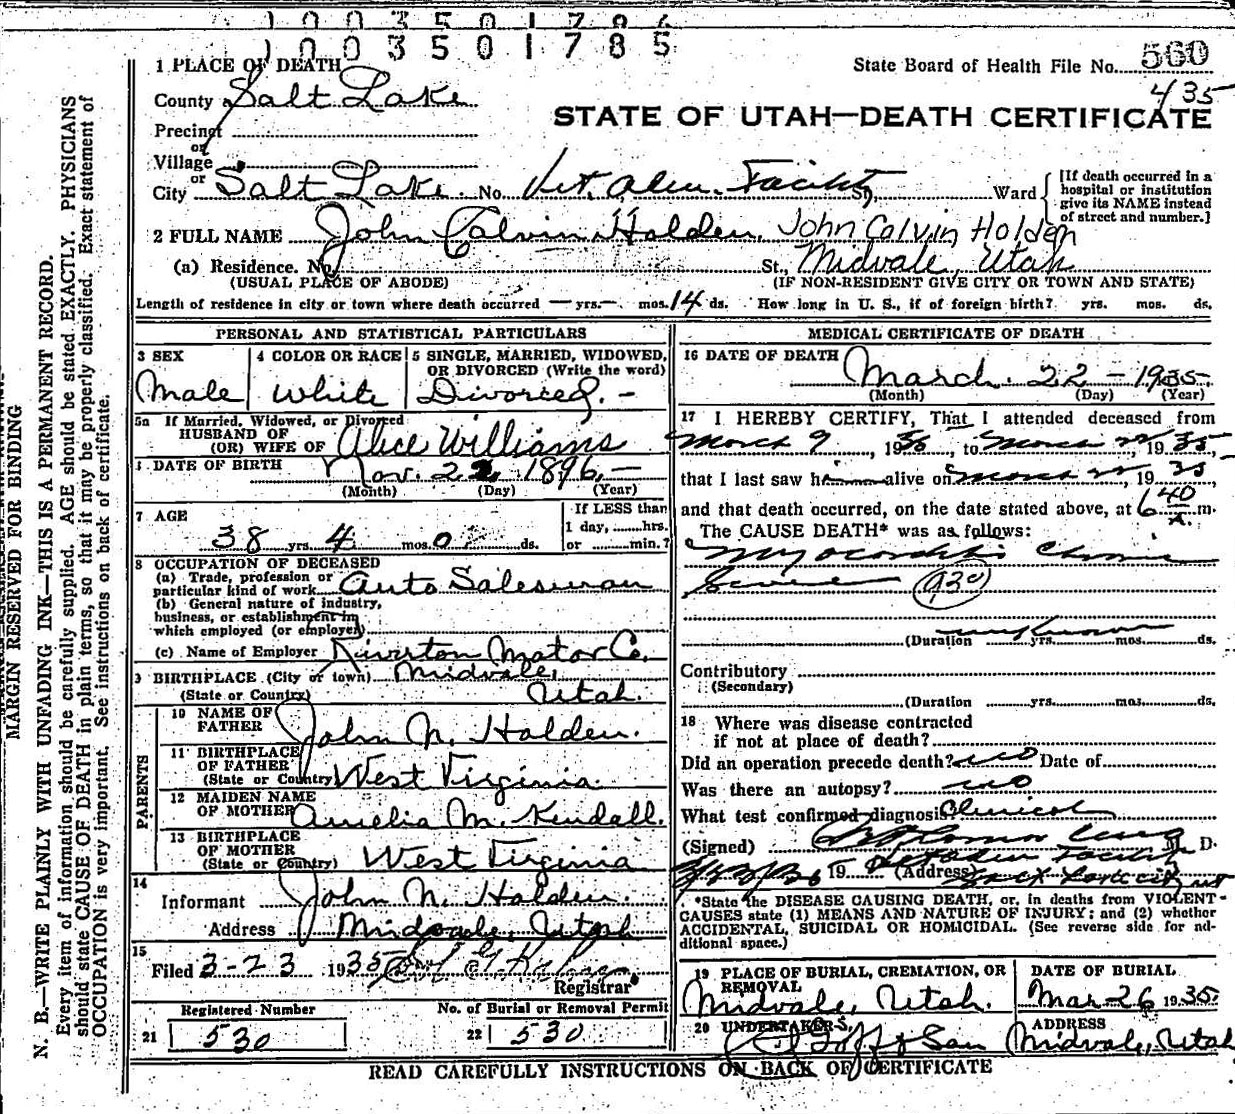 1003501785
1003501785
1 PLACE OF DEATH
State Board of Health File No. 560
435
County Salt Lake
STATE OF UTAH—DEATH CERTIFICATE
Precinct
or
Village
or
City Salt Lake. No. Vet. Adm. Facility St., Ward
[If death occurred in a hospital or institution give its NAME instead of street and number.]
2 FULL NAME John Calvin Holden, John Calvin Holden
(a) Residence. No. St., Midvale, Utah
(USUAL PLACE OF ABODE) (IF NON-RESIDENT GIVE CITY OR TOWN AND STATE)
Length of residence in city or town where death occurred — yrs. — mos. 14 ds. How long in U. S., if of foreign birth? yrs. mos. ds.
PERSONAL AND STATISTICAL PARTICULARS
3 SEX
Male
4 COLOR OR RACE
White
5 SINGLE, MARRIED, WIDOWED,
OR DIVORCED (Write the word)
Divorced. -
5a If Married, Widowed, or Divorced
HUSBAND OF
(OR) WIFE OF Alice Williams
DATE OF BIRTH Nov. 22 1896, —
(Month) (Day) (Year)
7 AGE
38 yrs. 4 mos. 0 ds.
If LESS than
1 day, ......hrs.
or ......min.?
8 OCCUPATION OF DECEASED
(a) Trade, profession or
particular kind of work Auto Salesman
(b) General nature of industry,
business, or establishment in
which employed (or employer)
(c) Name of Employer Riverton Motor Co.
9 BIRTHPLACE (City or town) Midvale,
(State or Country) Utah.
PARENTS
10 NAME OF
FATHER John N. Holden.
11 BIRTHPLACE
OF FATHER
(State or Country) West Virginia.
12 MAIDEN NAME
OF MOTHER Amelia M. Kendall.
13 BIRTHPLACE
OF MOTHER
(State or Country) West Virginia
14
Informant John N. Holden.
Address Midvale, Utah
15
Filed 3-23 1935
Registrar
Registered Number
21 530
No. of Burial or Removal Permit
22 530
MEDICAL CERTIFICATE OF DEATH
16 DATE OF DEATH March. 22 - 1935.
(Month) (Day) (Year)
17 I HEREBY CERTIFY, That I attended deceased from
March 9, 1935, to March 22, 1935,
that I last saw him alive on March 22, 1935,
and that death occurred, on the date stated above, at 6 40 A. m.
The CAUSE DEATH* was as follows:
Myocarditis Chronic
Severe 930
(Duration unknown yrs. mos. ds.
Contributory
(Secondary)
(Duration yrs. mos. ds.
18 Where was disease contracted
if not at place of death?
Did an operation precede death? no Date of
Was there an autopsy? no
What test confirmed diagnosis Clinical
(Signed) M. D.
19 (Address) Salt Lake City Ut
*State the DISEASE CAUSING DEATH, or, in deaths from VIOLENT
CAUSES state (1) MEANS AND NATURE OF INJURY; and (2) whether
ACCIDENTAL, SUICIDAL OR HOMICIDAL. (See reverse side for ad-
ditional space.)
19 PLACE OF BURIAL, CREMATION, OR
REMOVAL
Midvale, Utah.
DATE OF BURIAL
Mar 26 1935.
20 UNDERTAKERS,
Goff & Son
ADDRESS
Midvale, Utah
READ CAREFULLY INSTRUCTIONS ON BACK OF CERTIFICATE
MARGIN RESERVED FOR BINDING
N. B.—WRITE PLAINLY WITH UNFADING INK—THIS IS A PERMANENT RECORD.
Every item of information should be carefully supplied. AGE should be stated EXACTLY. PHYSICIANS
should state CAUSE OF DEATH in plain terms, so that it may be properly classified. Exact statement of
OCCUPATION is very important. See instructions on back of certificate.